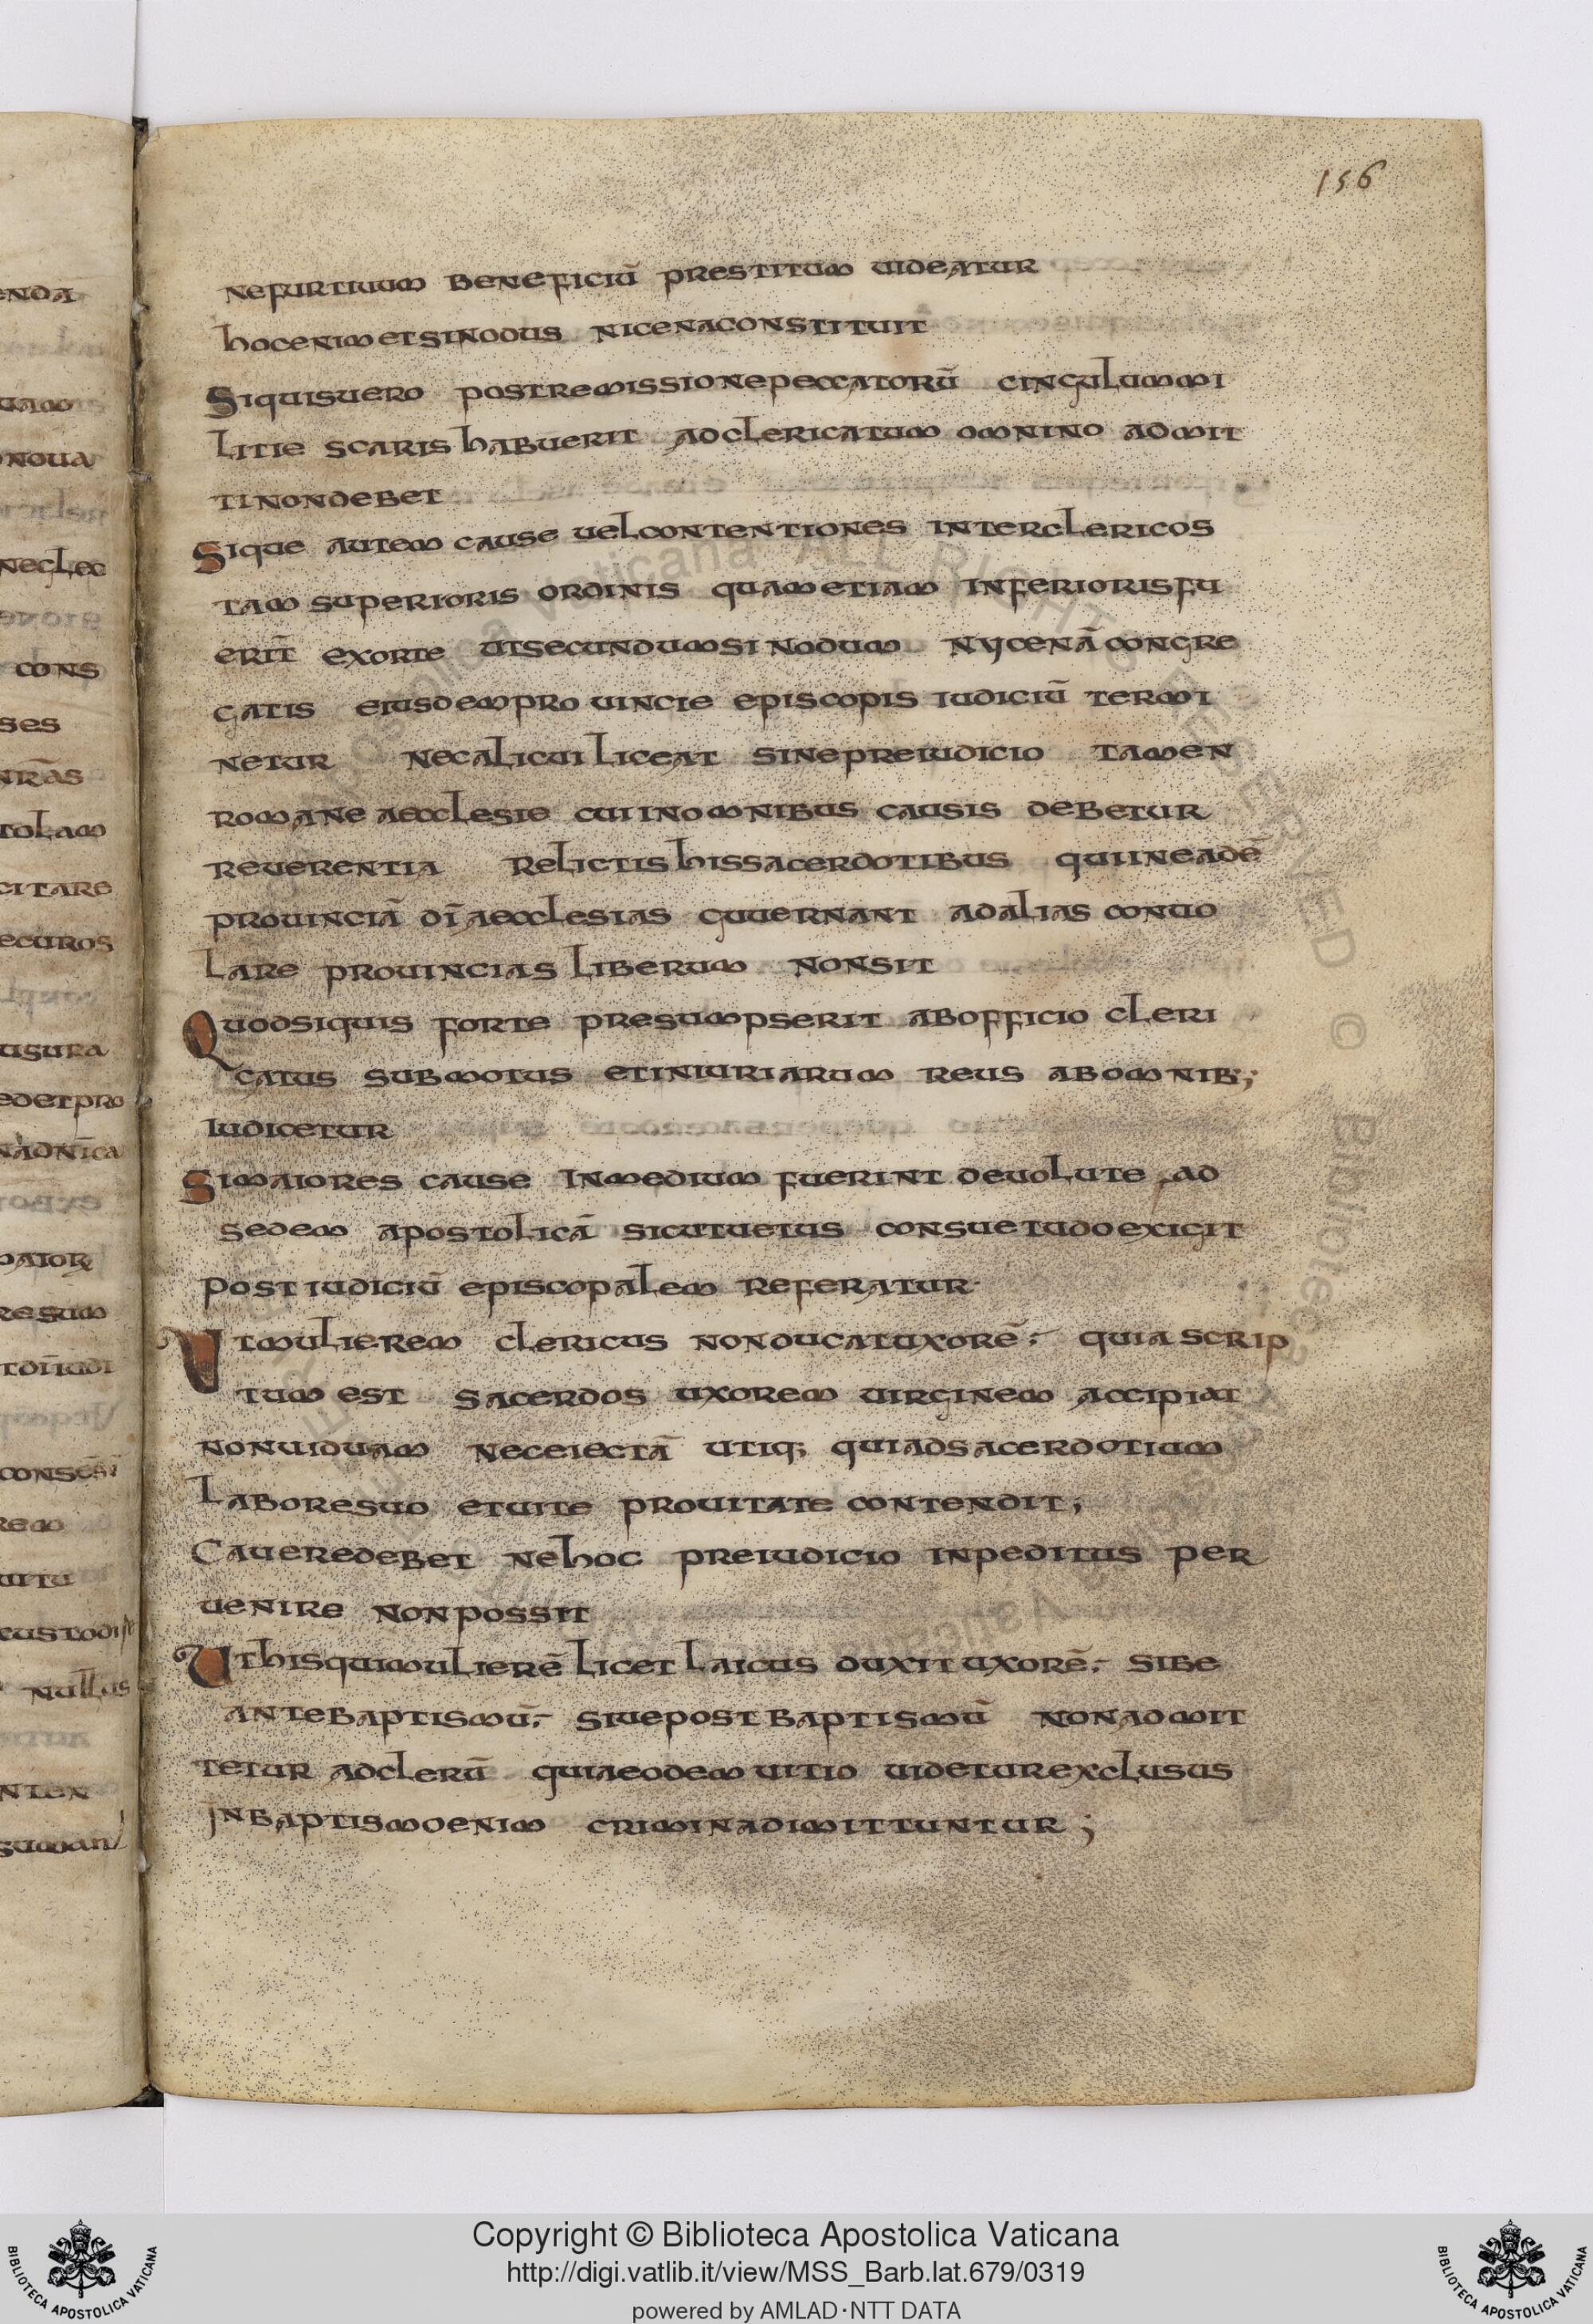 156
nefurtiuum beneficiū prestitum uideatur
hocenimetsinodus nicenaconstituit
Siquisuero postremissionepeccatorū cingulummi
litie scaris habuerit adclericatum omnino admit
tinondebet
Sique autem cause uelcontentiones interclericos
tam superioris ordinis quametiam inferiorisfu
erit̄ exorte utsecundumsinodum nycenā congre
gatis eiusdemprouincie episcopis iudiciū termi
netur necalicui liceat sinepreiudicio tamen
romane aecclesie cuiinomnibus causis debetur
reuerentia relictis hissacerdotibus quiineadē
prouinciā dī aecclesias guuernant adalias conuo
lare prouincias liberum nonsit
Quodsiquis forte presumpserit abofficio cleri
catus submotus etiniuriarum reus abomnib;;
iudicetur
Simaiores cause inmedium fuerint deuolute ad
sedem apostolicā sicutuetus consuetudoexigit
post iudiciū episcopalem referatur·
Utmulierem clericus nonducatuxorē· quia scrip
tum est sacerdos uxorem uirginem accipiat
nonuiduam neceiectā utiq; quiadsacerdotium
laboresuo etuite prouitate contendit;
Caueredebet nehoc preiudicio inpeditus per
uenire nonpossit
Uthisquimulierē licet laicus duxituxorē· sibe
antebaptismū· siuepost baptismū nonadmit
tetur adclerū quiaeodem uitio uideturexclusus
inbaptismoenim criminadimittuntur;
Copyright © Biblioteca Apostolica Vaticana
http://digi.vatlib.it/view/MSS_Barb.lat.679/0319
powered by AMLAD·NTT DATA